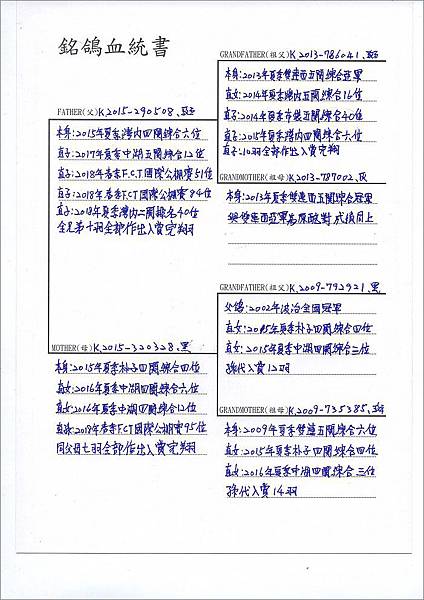 銘鴿血統書
FATHER(父)K2015-290508.斑
本身:2015年夏季灣內四關綜合六位
直子:2017年夏季中湖五關綜合12位
直子:2018年春季F.C.T國際公棚賽51位
直子:2018年春季F.C.T國際公棚賽84位
直子:2018年夏季灣內二關報名40位
全兄弟十羽全部作出入賞完翔
MOTHER(母)K2015-320328.黑
本身:2015年夏季朴子四關綜合四位
直女:2016年夏季中湖四關綜合六位
直女:2016年夏季中湖四關綜合12位
直孫:2018年春季F.C.T國際公棚賽95位
同父母七羽全部作出入賞完翔
GRANDFATHER(祖父)K2013-786041.斑
本身:2013年夏季雙連西五關綜合冠軍
直女:2014年夏季灣內五關綜合16位
直子:2014年夏季五關綜合40位
直子:2015年夏季灣內四關綜合六位
直子:10羽全部作出入賞完翔
GRANDMOTHER(祖母)K2013-787002.灰
本身:2013年夏季雙連西五關綜合冠軍
與雙連西亞軍為原配對成績同上
GRANDFATHER(祖父)K2009-792921.黑
父:2002年波治全國冠軍
直女:2015年夏季朴子四關綜合四位
直女:2015年夏季中湖四關綜合三位
孫代入賞12羽
GRANDMOTHER(祖母)K2009-735385.斑
本身:2009年夏季雙連五關綜合六位
直女:2015年夏季朴子四關綜合四位
直女:2016年夏季中湖四關綜合三位
孫代入賞14羽